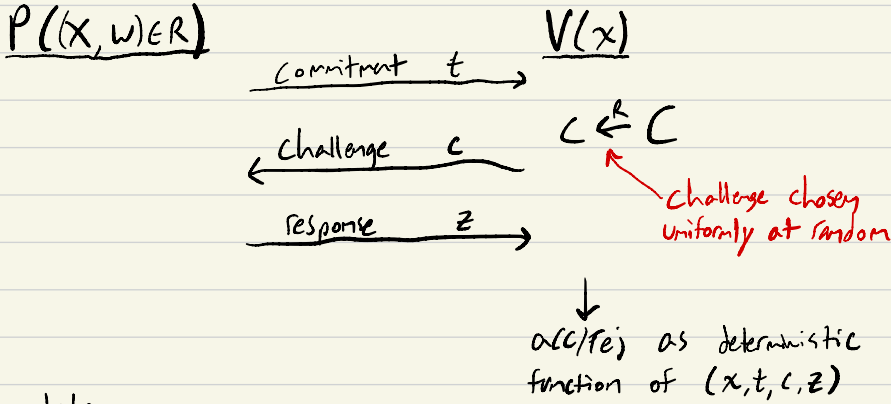 P((x,w)∈R)
V(x)
commitment t
c ←R C
challenge c
challenge chosen
uniformly at random
response z
acc/rej as deterministic
function of (x,t,c,z)